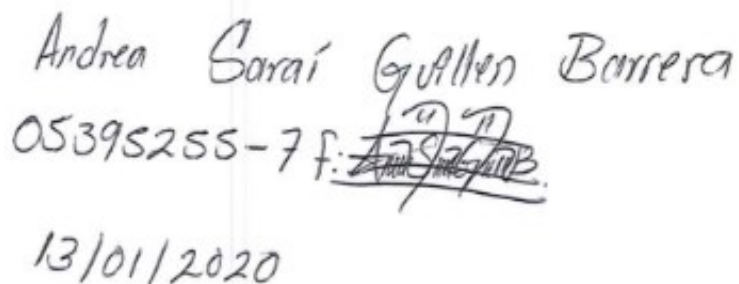 Andrea Saraí Guillen Barrera
05395255-7 f:
13/01/2020